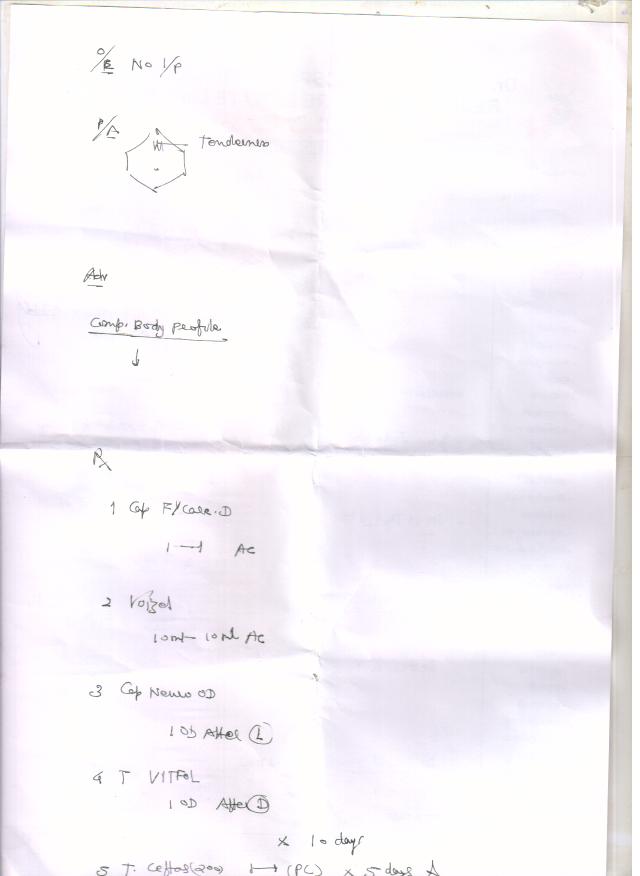 O/E No I/P
P/A Tenderness
Adv
Comp. Body profile
↓
Rx
1 Cap
1—1 AC
2
10ml — 10ml AC
3 Cap Neuro OD
1 OD After (L)
4 T VITFOL
1 OD After (D)
x 10 days
5 T. (200) 1—1 (PC) x 5 days